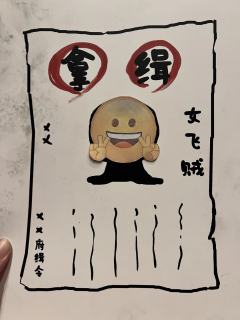 拿缉
女飞贼
××
××府缉令